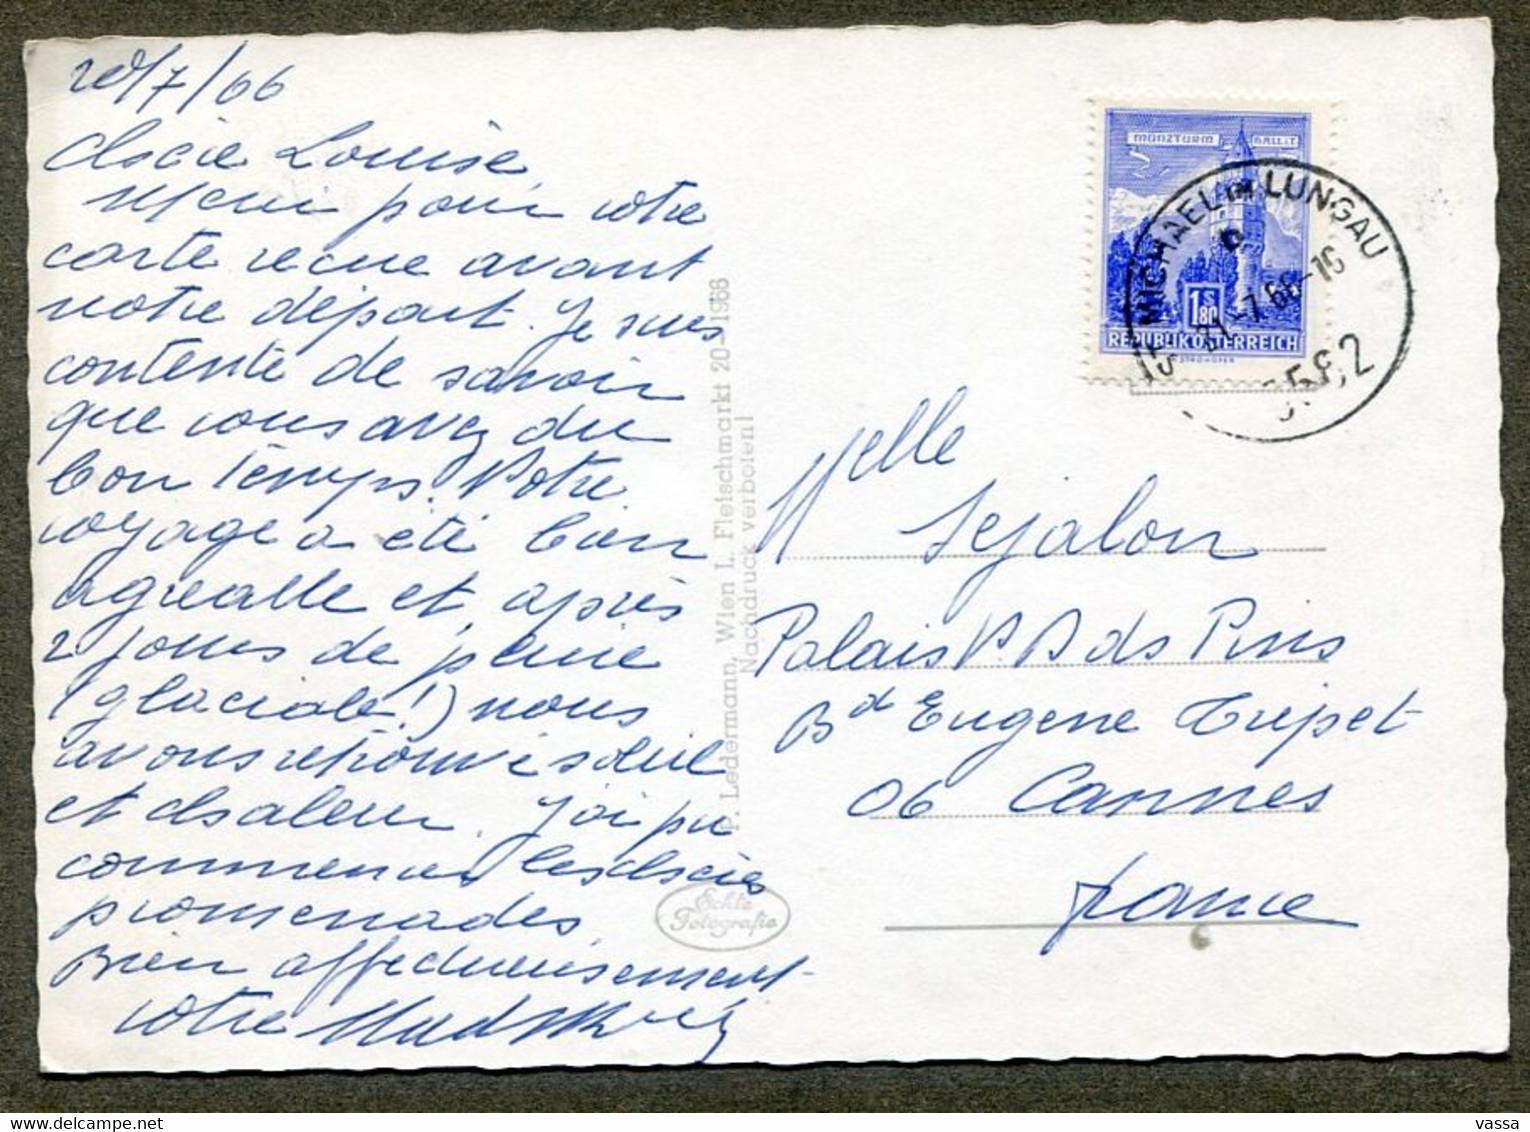 20/7/66
Chère Louise,
Merci pour votre
carte reçue avant
notre départ. Je suis
contente de savoir
que vous avez du
bon temps. Notre
voyage a été bien
agréable et, après
2 jours de pluie
(glaciale!) nous
avons retrouvé soleil
et chaleur. J'ai pu
commencer les chères
promenades.
Bien affectueusement
votre
P. Ledermann, Wien I., Fleischmarkt 20 - 1966
Nachdruck verboten!
Echte
Fotografie
MÜNZTURM HALL i.T
1 S 80
REPUBLIK ÖSTERREICH
ST. MICHAEL IM LUNGAU
b
21.-7.66-16
5582
Melle
Sejalon
Palais P. B ds Pins
Bd Eugene Tripet
06 Cannes
France
vassa